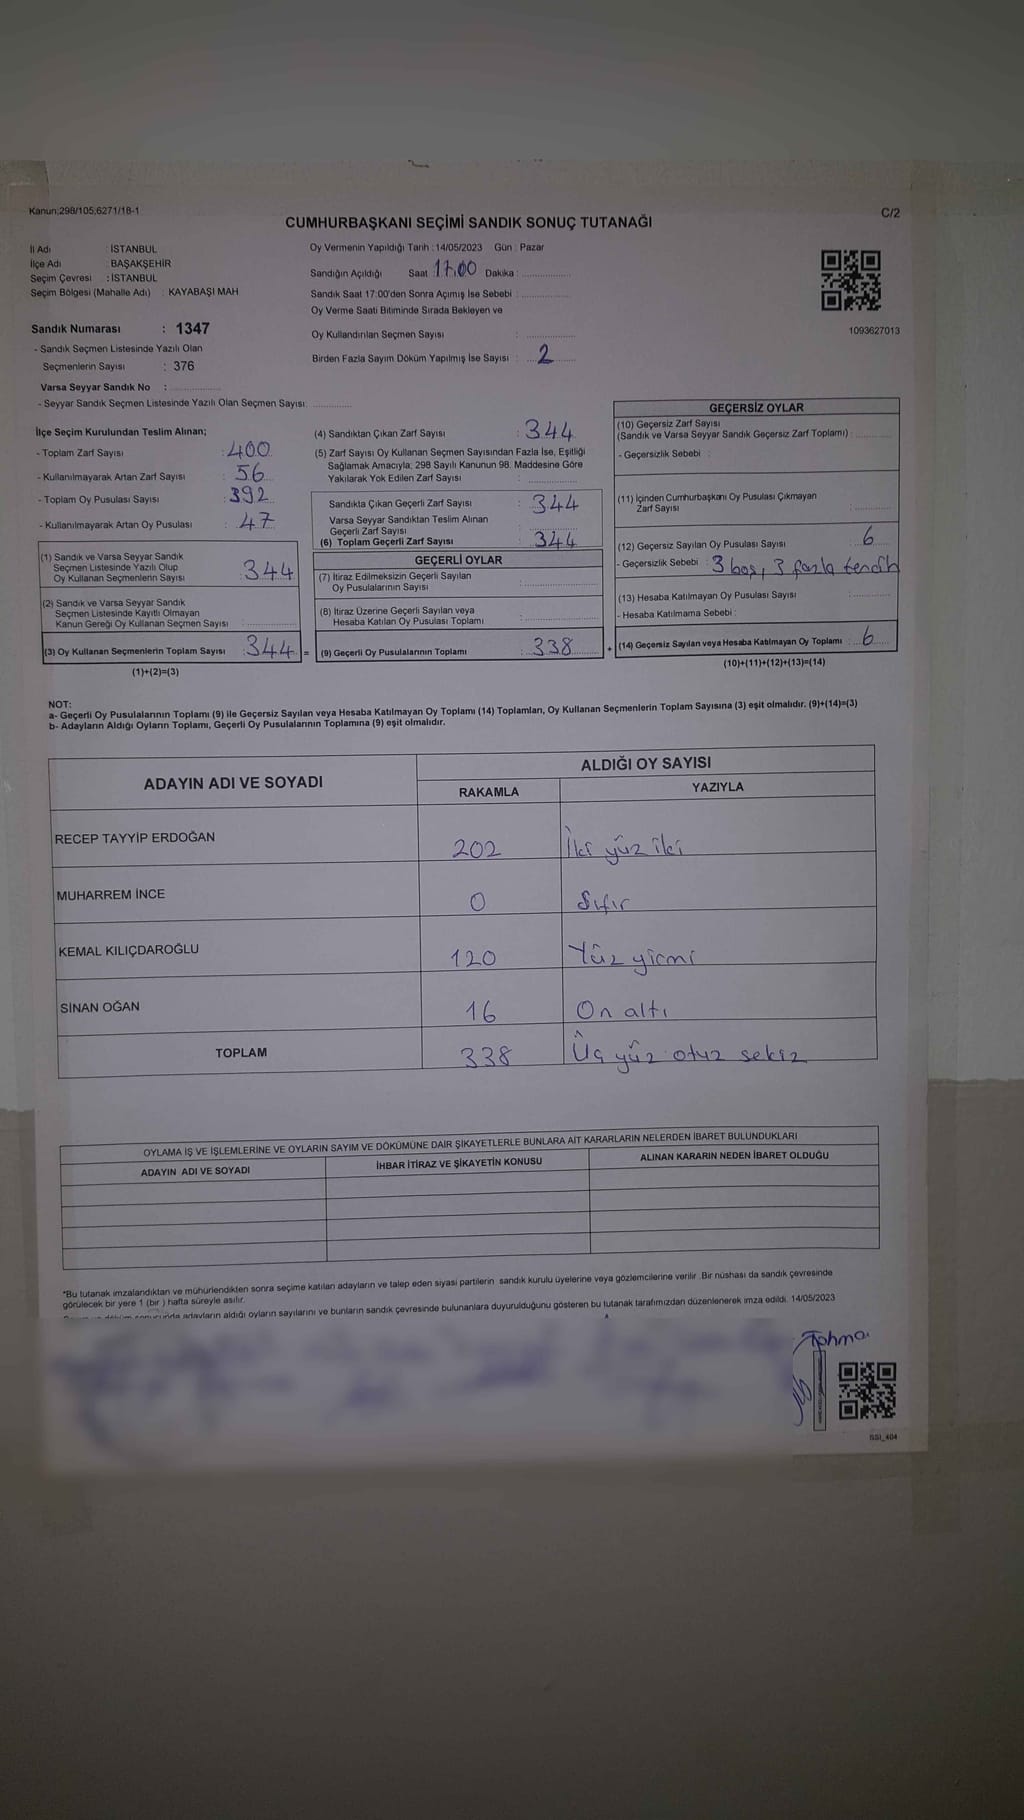 Kanun;298/105;6271/18-1
C/2
CUMHURBAŞKANI SEÇİMİ SANDIK SONUÇ TUTANAĞI
İl Adı : İSTANBUL
İlçe Adı : BAŞAKŞEHİR
Seçim Çevresi : İSTANBUL
Seçim Bölgesi (Mahalle Adı) : KAYABAŞI MAH
Sandık Numarası : 1347
- Sandık Seçmen Listesinde Yazılı Olan
Seçmenlerin Sayısı : 376
Varsa Seyyar Sandık No :
- Seyyar Sandık Seçmen Listesinde Yazılı Olan Seçmen Sayısı:
Oy Vermenin Yapıldığı Tarih : 14/05/2023 Gün : Pazar
Sandığın Açıldığı Saat 17.00 Dakika :
Sandık Saat 17:00'den Sonra Açımış İse Sebebi :
Oy Verme Saati Bitiminde Sırada Bekleyen ve
Oy Kullandırılan Seçmen Sayısı :
Birden Fazla Sayım Döküm Yapılmış İse Sayısı : 2
1093627013
İlçe Seçim Kurulundan Teslim Alınan;
- Toplam Zarf Sayısı : 400
- Kullanılmayarak Artan Zarf Sayısı : 56
- Toplam Oy Pusulası Sayısı : 392
- Kullanılmayarak Artan Oy Pusulası : 47
(1) Sandık ve Varsa Seyyar Sandık
Seçmen Listesinde Yazılı Olup
Oy Kullanan Seçmenlerin Sayısı : 344
(2) Sandık ve Varsa Seyyar Sandık
Seçmen Listesinde Kayıtlı Olmayan
Kanun Gereği Oy Kullanan Seçmen Sayısı :
(3) Oy Kullanan Seçmenlerin Toplam Sayısı : 344 =
(1)+(2)=(3)
(4) Sandıktan Çıkan Zarf Sayısı : 344
(5) Zarf Sayısı Oy Kullanan Seçmen Sayısından Fazla İse, Eşitliği
Sağlamak Amacıyla; 298 Sayılı Kanunun 98. Maddesine Göre
Yakılarak Yok Edilen Zarf Sayısı :
Sandıkta Çıkan Geçerli Zarf Sayısı : 344
Varsa Seyyar Sandıktan Teslim Alınan
Geçerli Zarf Sayısı
(6) Toplam Geçerli Zarf Sayısı : 344
GEÇERLİ OYLAR
(7) İtiraz Edilmeksizin Geçerli Sayılan
Oy Pusulalarının Sayısı :
(8) İtiraz Üzerine Geçerli Sayılan veya
Hesaba Katılan Oy Pusulası Toplamı :
(9) Geçerli Oy Pusulalarının Toplamı : 338 +
GEÇERSİZ OYLAR
(10) Geçersiz Zarf Sayısı
(Sandık ve Varsa Seyyar Sandık Geçersiz Zarf Toplamı) :
- Geçersizlik Sebebi :
(11) İçinden Cumhurbaşkanı Oy Pusulası Çıkmayan
Zarf Sayısı :
(12) Geçersiz Sayılan Oy Pusulası Sayısı : 6
- Geçersizlik Sebebi : 3 boş, 3 fazla tercih
(13) Hesaba Katılmayan Oy Pusulası Sayısı :
- Hesaba Katılmama Sebebi :
(14) Geçersiz Sayılan veya Hesaba Katılmayan Oy Toplamı : 6
(10)+(11)+(12)+(13)=(14)
NOT:
a- Geçerli Oy Pusulalarının Toplamı (9) ile Geçersiz Sayılan veya Hesaba Katılmayan Oy Toplamı (14) Toplamları, Oy Kullanan Seçmenlerin Toplam Sayısına (3) eşit olmalıdır. (9)+(14)=(3)
b- Adayların Aldığı Oyların Toplamı, Geçerli Oy Pusulalarının Toplamına (9) eşit olmalıdır.
ADAYIN ADI VE SOYADI
ALDIĞI OY SAYISI
RAKAMLA YAZIYLA
RECEP TAYYİP ERDOĞAN 202 İki yüz iki
MUHARREM İNCE 0 Sıfır
KEMAL KILIÇDAROĞLU 120 Yüz yirmi
SİNAN OĞAN 16 On altı
TOPLAM 338 Üç yüz otuz sekiz
OYLAMA İŞ VE İŞLEMLERİNE VE OYLARIN SAYIM VE DÖKÜMÜNE DAİR ŞİKAYETLERLE BUNLARA AİT KARARLARIN NELERDEN İBARET BULUNDUKLARI
ADAYIN ADI VE SOYADI İHBAR İTİRAZ VE ŞİKAYETİN KONUSU ALINAN KARARIN NEDEN İBARET OLDUĞU
*Bu tutanak imzalandıktan ve mühürlendikten sonra seçime katılan adayların ve talep eden siyasi partilerin sandık kurulu üyelerine veya gözlemcilerine verilir. Bir nüshası da sandık çevresinde
görülecek bir yere 1 (bir ) hafta süreyle asılır.
adayların aldığı oyların sayılarını ve bunların sandık çevresinde bulunanlara duyurulduğunu gösteren bu tutanak tarafımızdan düzenlenerek imza edildi. 14/05/2023